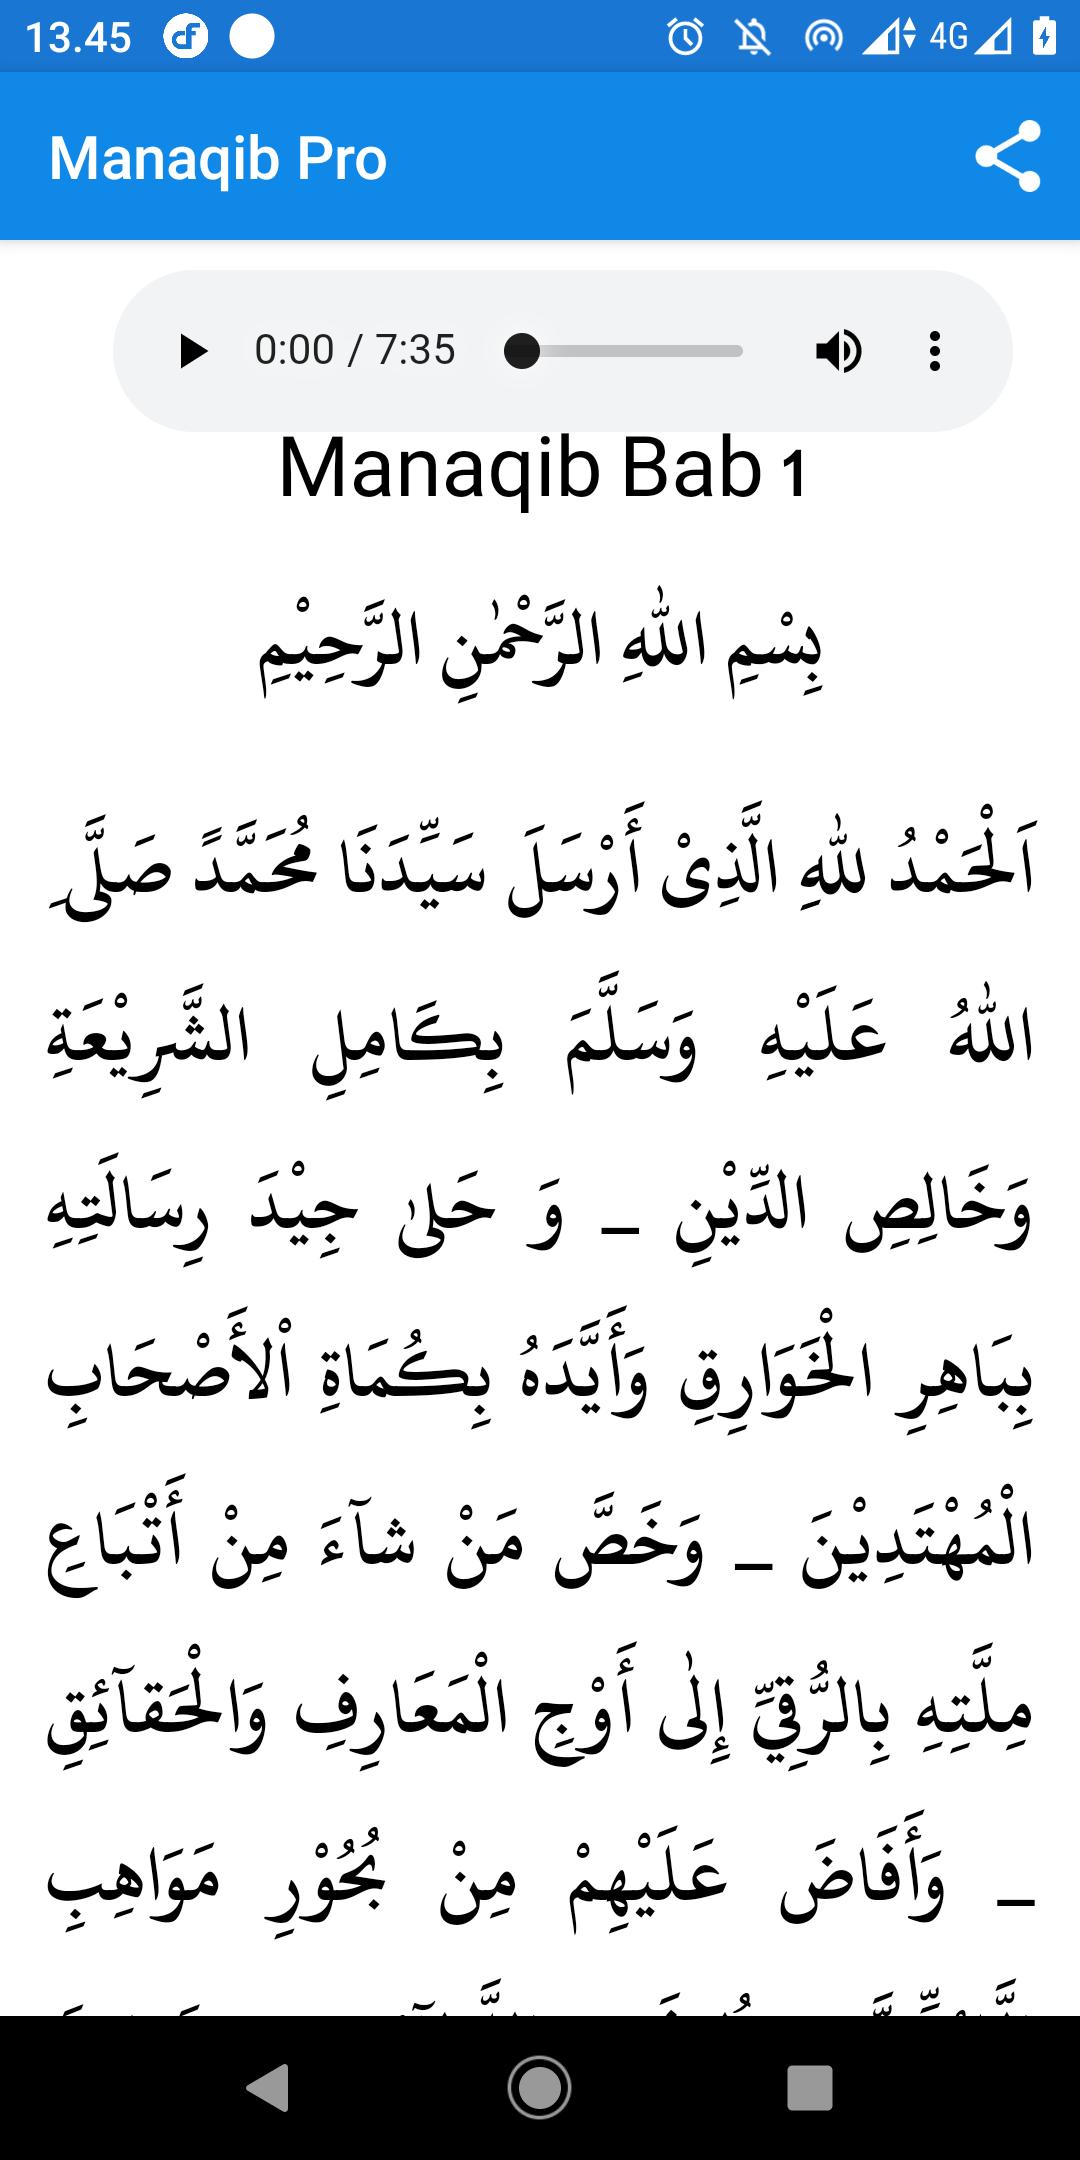 13.45
4G
Manaqib Pro
0:00 / 7:35
Manaqib Bab 1
بِسْمِ اللهِ الرَّحْمٰنِ الرَّحِيْمِ
اَلْحَمْدُ للهِ الَّذِىْ أَرْسَلَ سَيِّدَنَا مُحَمَّدً صَلَّىِ
اللهُ عَلَيْهِ وَسَلَّمَ بِكَامِلِ الشَّرِيْعَةِ
وَخَالِصِ الدِّيْنِ _ وَ حَلىٰ جِيْدَ رِسَالَتِهِ
بِبَاهِرِ الْخَوَارِقِ وَأَيَّدَهُ بِكُمَاةِ اْلأَصْحَابِ
الْمُهْتَدِيْنَ _ وَخَصَّ مَنْ شآءَ مِنْ أَتْبَاعِ
مِلَّتِهِ بِالرُّقِيِّ إِلٰى أَوْجِ الْمَعَارِفِ وَالْحَقآئِقِ
_ وَأَفَاضَ عَلَيْهِمْ مِنْ بُحُوْرِ مَوَاهِبِ